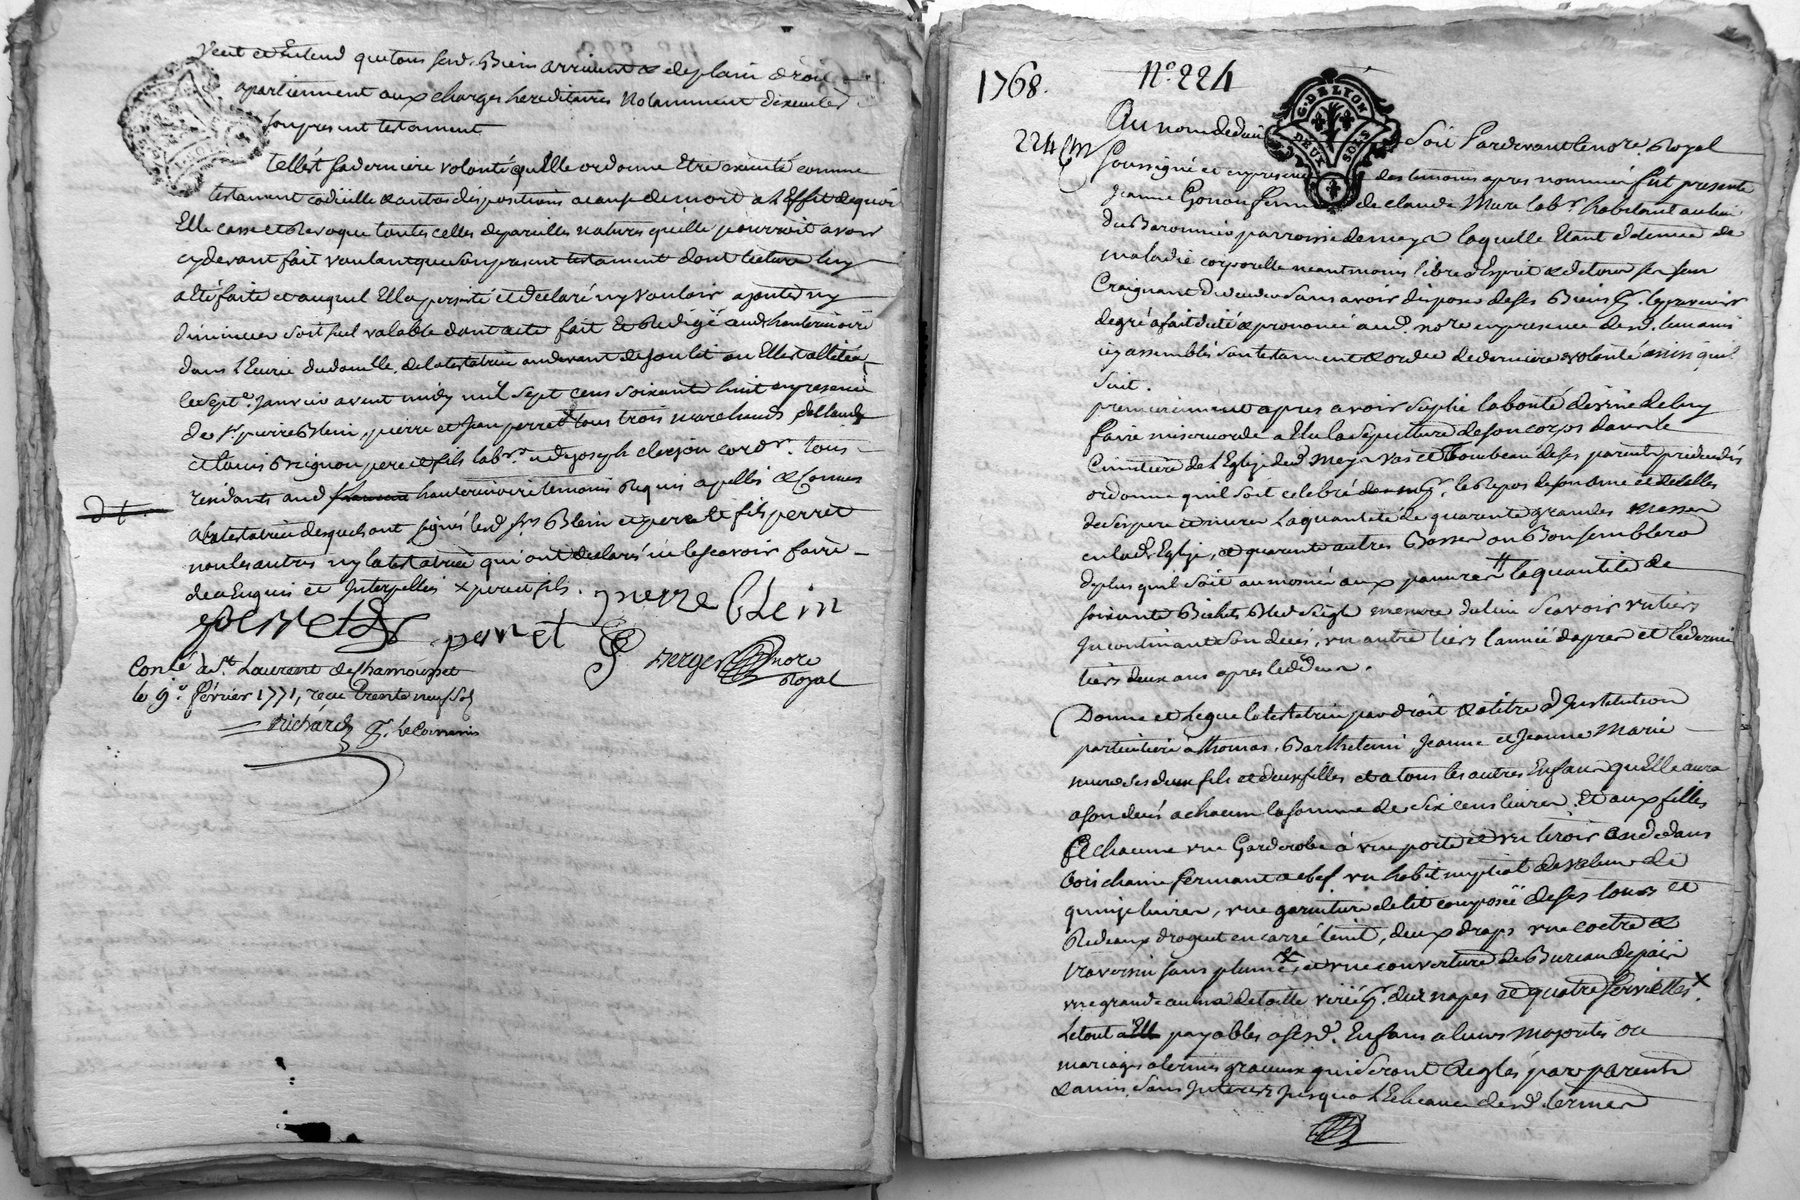 veut et Entend que tous sesd. Biens arrivent & de plain droit
apartiennent aux charges hereditaires Notamment d'executer
son present testament
telle est sa derniere volonté qu'Elle ordonne Etre executé comme
testament codicille & autres dispositions a cause de mort a l'Effet de quoi
Elle casse et Revoque toutes celles de pareilles natures qu'elle pourroit avoir
cy devant fait voulant que son present testament dont lecture luy
a été faite et auquel Elle a persisté et declaré ny vouloir ajouter ny
diminuer soit seul valable dont acte fait Et Redigé aud. hauterivoire
dans l'Ecurie du domlle. de la testatrice au devant de son lit ou Elle est alitée
le sept. janvier avant midy mil sept cens soixante huit en presence
de sr. pierre Blein, pierre et Jean perret tous trois marchands
et Louis Grignon pere et fils labrs. joseph clerjon cordr. tous
residants aud. hauterivoire temoins Requis apellés & Connus
a la testatrice desquels ont signés lesd. srs Blein et perret fils perret
non les autres ny la testatrice qui ont declaré ne le scavoir faire
de ce Enquis et Interpellés x perret fils.
perret pierre blein
perret
Berger nore
Royal
Conlé. à St. Laurent de Chamousset
le 9e. février 1771, reçu trente neuf sols
Richard
G.DE LYON
DEUX SOLS
1768. N°. 224
224
Au nom de dieu soit Pardevant le nore. Royal
soussigné et en presence des temoins apres nommés fut presente
jeanne Gonon femme de claude Mure labr. habitant au lieu
du Baronnier parroisse de meys laquelle Etant detenue de
maladie corporelle neantmoins libre d'Esprit & de tous ses sens
Craignant de deceder sans avoir disposer de ses Biens
degré a fait dicté & prononcé aud. nore en presence desd. temoins
icy assemblés son testament & ordre de derniere volonté ainsi qu'il
suit.
premierement apres avoir suplié la bonté divine de luy
faire misericorde a Elu la sepulture de son corps dans le
Cimetière de l'Eglise de Meys vas et tombeau de ses parents predecedés
ordonne qu'il soit celebré le Repos de son ame et de celles
de ses pere et mere la quantité de quarante grandes messes
en lad. Eglise, & quarante autres Basses ou Bon semblera
de plus qu'il soit aumoné aux pauvres la quantité de
soixante Bichets Bled seigle mesure du lieu scavoir un tiers
Incontinent son deces, un autre tiers l'année d'apres et le dernier
tiers deux ans apres led. deces.
Donne et Legue la testatrice par droit & a titre d'Institution
particuliere à Thomas, Barthelemi, Jeanne et Jeanne Marie
mure ses deux fils et deux filles et a tous les autres Enfans qu'Elle aura
a son deces a chacun la somme de six cens livres. Et aux filles
chacune une Garderobe à une porte et un tiroir au dedans
bois chaine fermant a clef un habit nuptial de valeur de
quinze livres, une garniture de lit composée de ses tours et
Rideaux droguet en carré teint, deux draps une coetre &
traversin sans plume, et une couverture de Bureau de païs
une grande de toille deux napes et quatre serviettes x.
Le tout payables a sesd. Enfans a leurs majorités ou
mariages a termes gracieux qui seront Reglés par parents
& amis sans Interets jusqu'a l'Echeance desd. termes